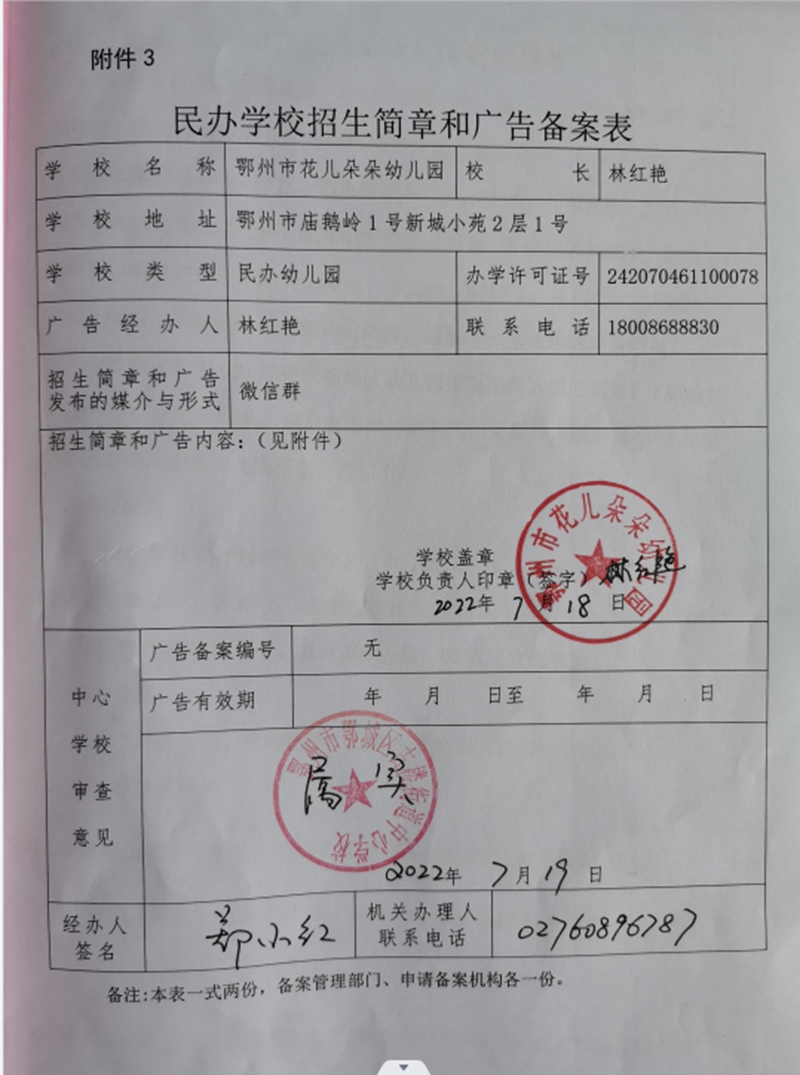 附件 3
民办学校招生简章和广告备案表
学校名称 鄂州市花儿朵朵幼儿园 校长 林红艳
学校地址 鄂州市庙鹅岭1号新城小苑2层1号
学校类型 民办幼儿园 办学许可证号 242070461100078
广告经办人 林红艳 联系电话 18008688830
招生简章和广告
发布的媒介与形式
微信群
招生简章和广告内容：（见附件）
鄂州市花儿朵朵幼儿园
学校盖章
学校负责人印章（签字）林红艳
2022年7月18日
中心
学校
审查
意见
广告备案编号 无
广告有效期 年 月 日至 年 月 日
属实
2022年7月19日
经办人
签名
郑小红
机关办理人
联系电话
02760896787
备注：本表一式两份，备案管理部门、申请备案机构各一份。